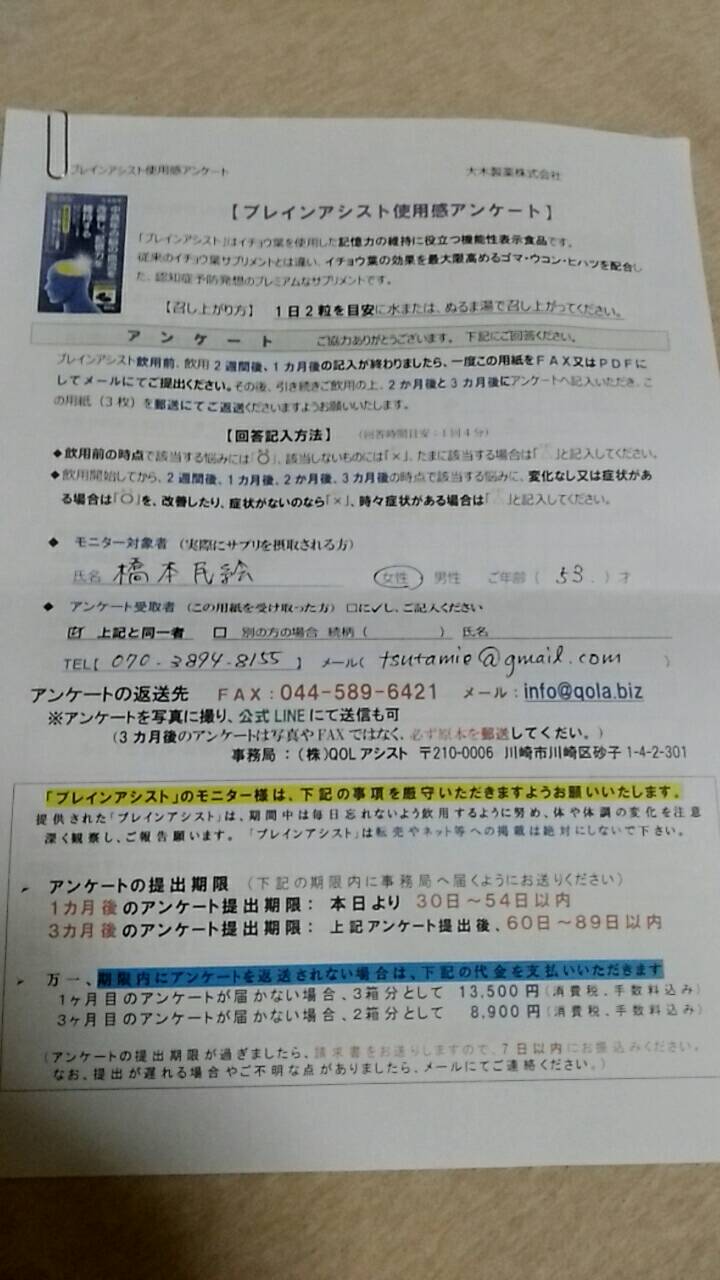 ブレインアシスト使用感アンケート 大木製薬株式会社
【ブレインアシスト使用感アンケート】
「ブレインアシスト」はイチョウ葉を使用した記憶力の維持に役立つ機能性表示食品です。
従来のイチョウ葉サプリメントとは違い、イチョウ葉の効果を最大限高めるゴマ・ウコン・ヒハツを配合し
た、認知症予防発想のプレミアムなサプリメントです。
【召し上がり方】 1日2粒を目安に水または、ぬるま湯で召し上がってください。
アンケート ご協力ありがとうございます。下記にご回答ください。
ブレインアシスト飲用前、飲用2週間後、1カ月後の記入が終わりましたら、一度この用紙をFAX又はPDFに
してメールにてご提出ください。その後、引き続きご飲用の上、2か月後と3カ月後にアンケートへ記入いただき、こ
の用紙(3枚)を郵送にてご返送くださいますようお願いいたします。
【回答記入方法】 (回答時間目安:1回4分)
◆飲用前の時点で該当する悩みには「○」、該当しないものには「×」、たまに該当する場合は「△」と記入してください。
◆飲用開始してから、2週間後、1カ月後、2か月後、3カ月後の時点で該当する悩みに、変化なし又は症状があ
る場合は「○」を、改善したり、症状がないのなら「×」、時々症状がある場合は「△」と記入してください。
◆ モニター対象者 (実際にサプリを摂取される方)
氏名 橋本民絵 女性 男性 ご年齢( 53. )才
◆ アンケート受取者 (この用紙を受け取った方) □に✓し、ご記入ください
☑ 上記と同一者 □ 別の方の場合 続柄( ) 氏名
TEL【 070-3894-8155 】 メール( tsutamie@gmail.com )
アンケートの返送先 FAX:044-589-6421 メール:info@qola.biz
※アンケートを写真に撮り、公式LINEにて送信も可
(3カ月後のアンケートは写真やFAXではなく、必ず原本を郵送してくだい。)
事務局:(株)QOLアシスト 〒210-0006 川崎市川崎区砂子1-4-2-301
「ブレインアシスト」のモニター様は、下記の事項を厳守いただきますようお願いいたします。
提供された「ブレインアシスト」は、期間中は毎日忘れないよう飲用するように努め、体や体調の変化を注意
深く観察し、ご報告願います。「ブレインアシスト」は転売やネット等への掲載は絶対にしないで下さい。
➢ アンケートの提出期限 (下記の期限内に事務局へ届くようにお送りください)
1カ月後のアンケート提出期限: 本日より 30日~54日以内
3カ月後のアンケート提出期限: 上記アンケート提出後、60日~89日以内
➢ 万一、期限内にアンケートを返送されない場合は、下記の代金を支払いいただきます
1ヶ月目のアンケートが届かない場合、3箱分として 13,500円(消費税、手数料込み)
3ヶ月目のアンケートが届かない場合、2箱分として 8,900円(消費税、手数料込み)
(アンケートの提出期限が過ぎましたら、請求書をお送りしますので、7日以内にお振込みください。
なお、提出が遅れる場合やご不明な点がありましたら、メールにてご連絡ください。)